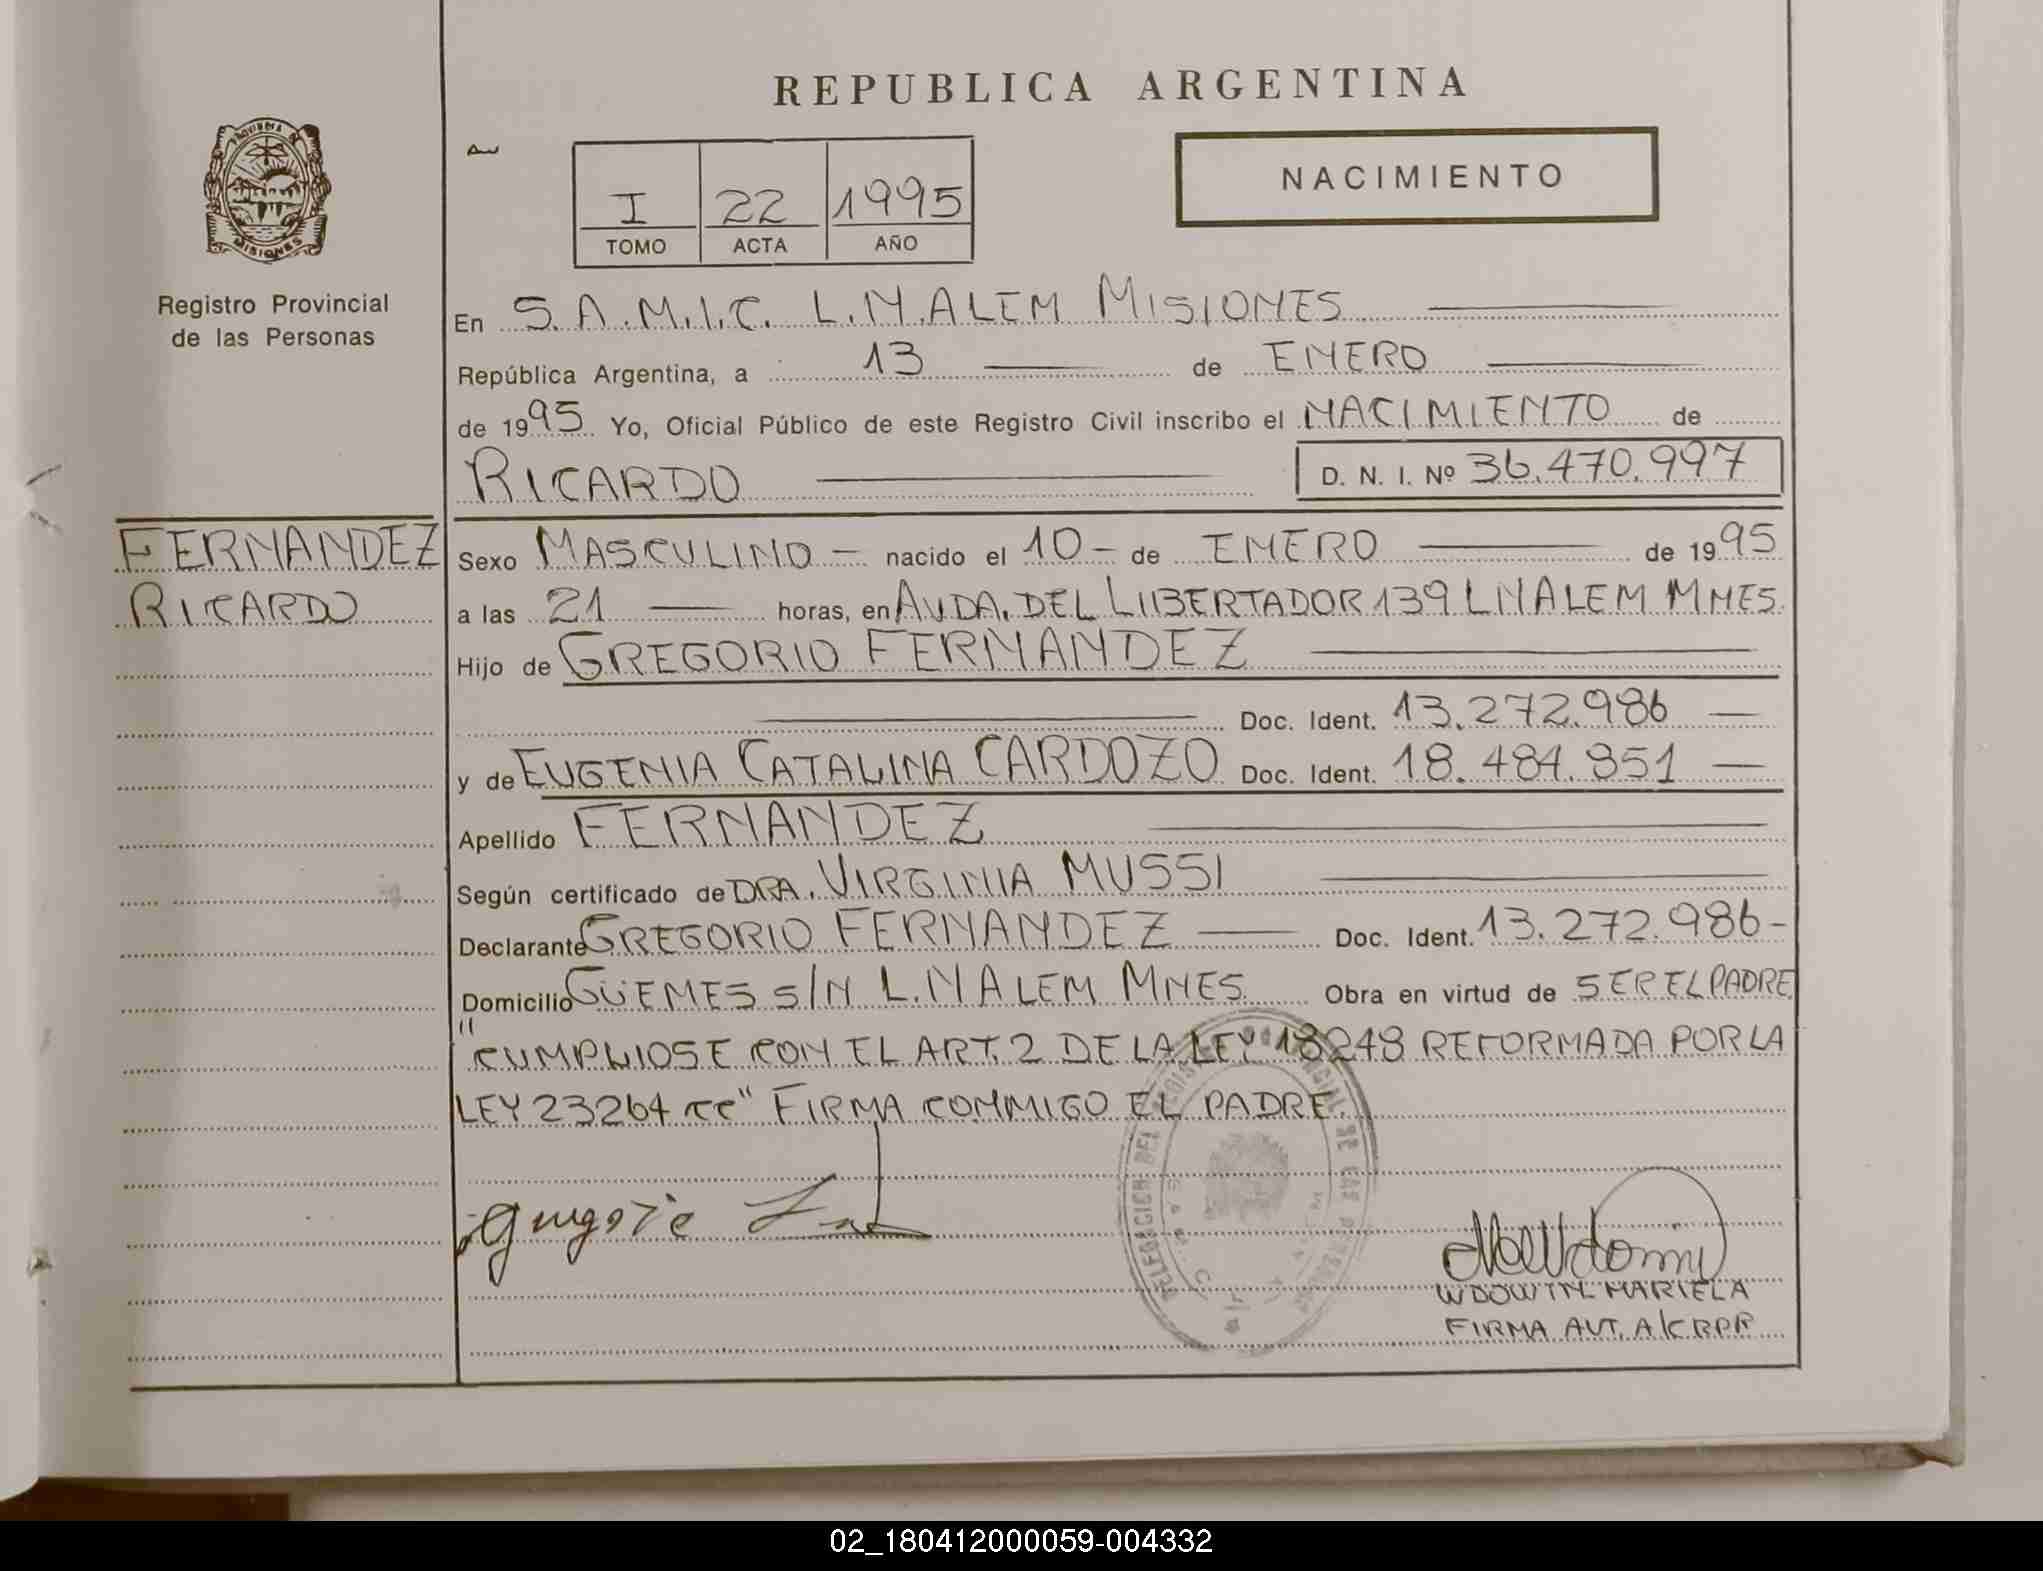 REPUBLICA ARGENTINA
NACIMIENTO
I 22 1995
TOMO ACTA AÑO
PROVINCIA DE
MISIONES
Registro Provincial
de las Personas
En S.A.M.I.C. L.N.ALEM MISIONES
República Argentina, a 13 de ENERO
de 1995 Yo, Oficial Público de este Registro Civil inscribo el NACIMIENTO de
RICARDO D. N. I. Nº 36.470.997
FERNANDEZ
RICARDO
Sexo MASCULINO - nacido el 10 - de ENERO de 1995
a las 21 horas, en AVDA. DEL LIBERTADOR 139 LNALEM MNES.
Hijo de GREGORIO FERNANDEZ
Doc. Ident. 13.272.986
y de EUGENIA CATALINA CARDOZO Doc. Ident. 18.484.851
Apellido FERNANDEZ
Según certificado de DRA. VIRGINIA MUSSI
Declarante GREGORIO FERNANDEZ Doc. Ident. 13.272.986-
Domicilio GÜEMES S/N L.N ALEM MNES Obra en virtud de SER EL PADRE
"CUMPLIOSE CON EL ART. 2 DE LA LEY 18248 REFORMADA POR LA
LEY 23264 CC" FIRMA CONMIGO EL PADRE.
WDOWIN MARIELA
FIRMA AUT. A/C RPP
02_180412000059-004332